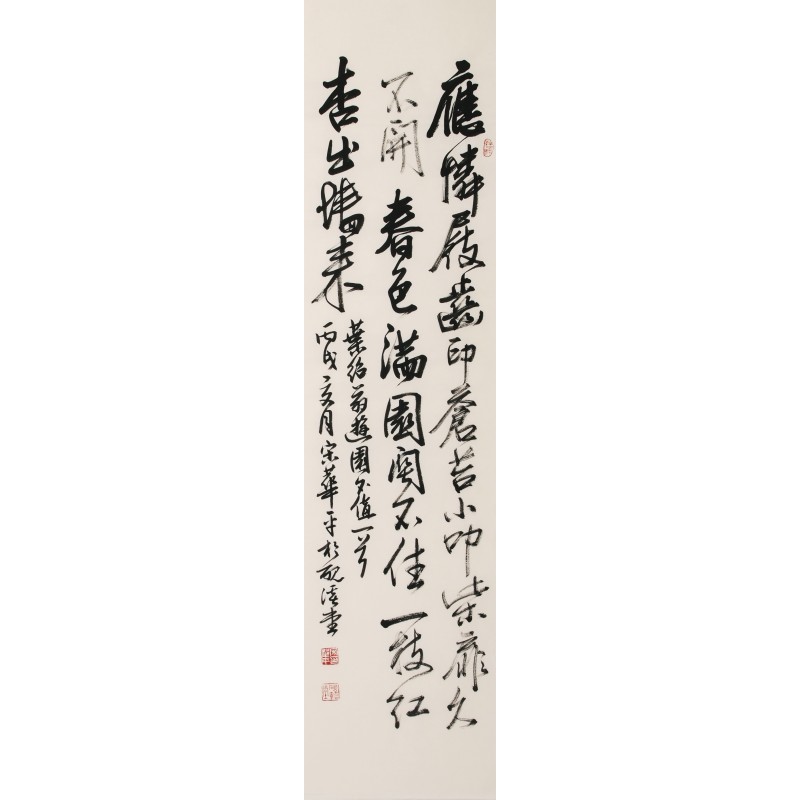 應憐屐齒印蒼苔小叩柴扉久
不開春色滿園關不住一枝紅
杏出墻來
葉紹翁遊園不值一首
丙戌六月宋華平於硯溪堂